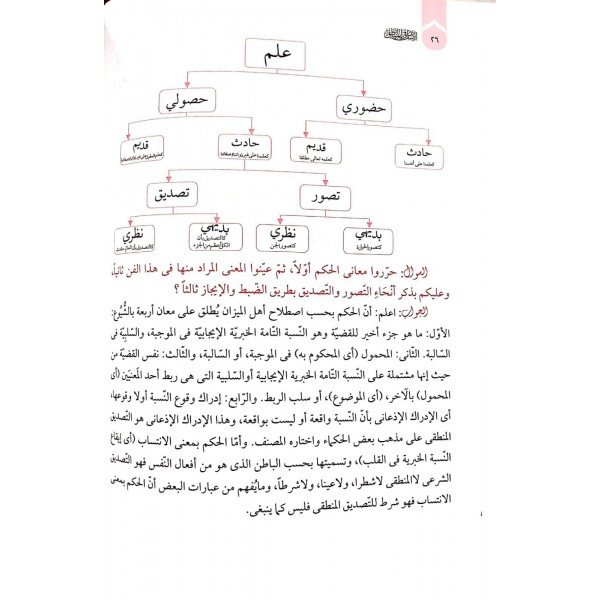 ٢٦
علم
حضوري
حصولي
حادث
كعلمنا على أنفسنا
قديم
كعلمه تعالى مطلقا
حادث
قديم
تصور
تصديق
بديهي
كتصور الحرارة
نظري
كتصور الجن
بديهي
كالتصديق بأن
الكل أعظم من الجزء
نظري
السؤال: حرّروا معانى الحكم أوّلاً، ثمّ عيّنوا المعنى المراد منها فى هذا الفن ثانياً،
وعليكم بذكر أنْحَاءِ التّصور والتّصديق بطريق الضّبط والإيجاز ثالثاً ؟
الجواب: اعلم: أنّ الحكم بحسب اصطلاح أهل الميزان يُطلق على معان أربعة بالشُّيُوع:
الأوّل: ما هو جزء أخير للقضيّة وهو النّسبة التّامة الخبريّة الإيجابيّة فى الموجبة، والسّلبيّة فى
السّالبة. الثّانى: المحمول (أى المحكوم به) فى الموجبة، أو السّالبة، والثّالث: نفس القضيّة من
حيث إنها مشتملة على النّسبة التّامة الخبرية الإيجابية أوالسّلبية التى هى ربط أحد المعنَيَين (أى
المحمول) بالآخر، (أى الموضوع)، أو سلب الربط. والرّابع: إدراك وقوع النّسبة أولا وقوعها،
أى الإدراك الإذعانى بأنّ النّسبة واقعة أو ليست بواقعة، وهذا الإدراك الإذعانى هو التّصديق
المنطقى على مذهب بعض الحكماء واختاره المصنف. وأمّا الحكم بمعنى الانتساب (أى إيقاع
النّسبة الخبرية فى القلب)، وتسميتها بحسب الباطن الذى هو من أفعال النّفس فهو التّصديق
الشرعى لاالمنطقى لاشطرا، ولاعينا، ولاشرطاً، ومايُفهم من عبارات البعض أنّ الحكم بمعنى
الانتساب فهو شرط للتّصديق المنطقى فليس كما ينبغى.